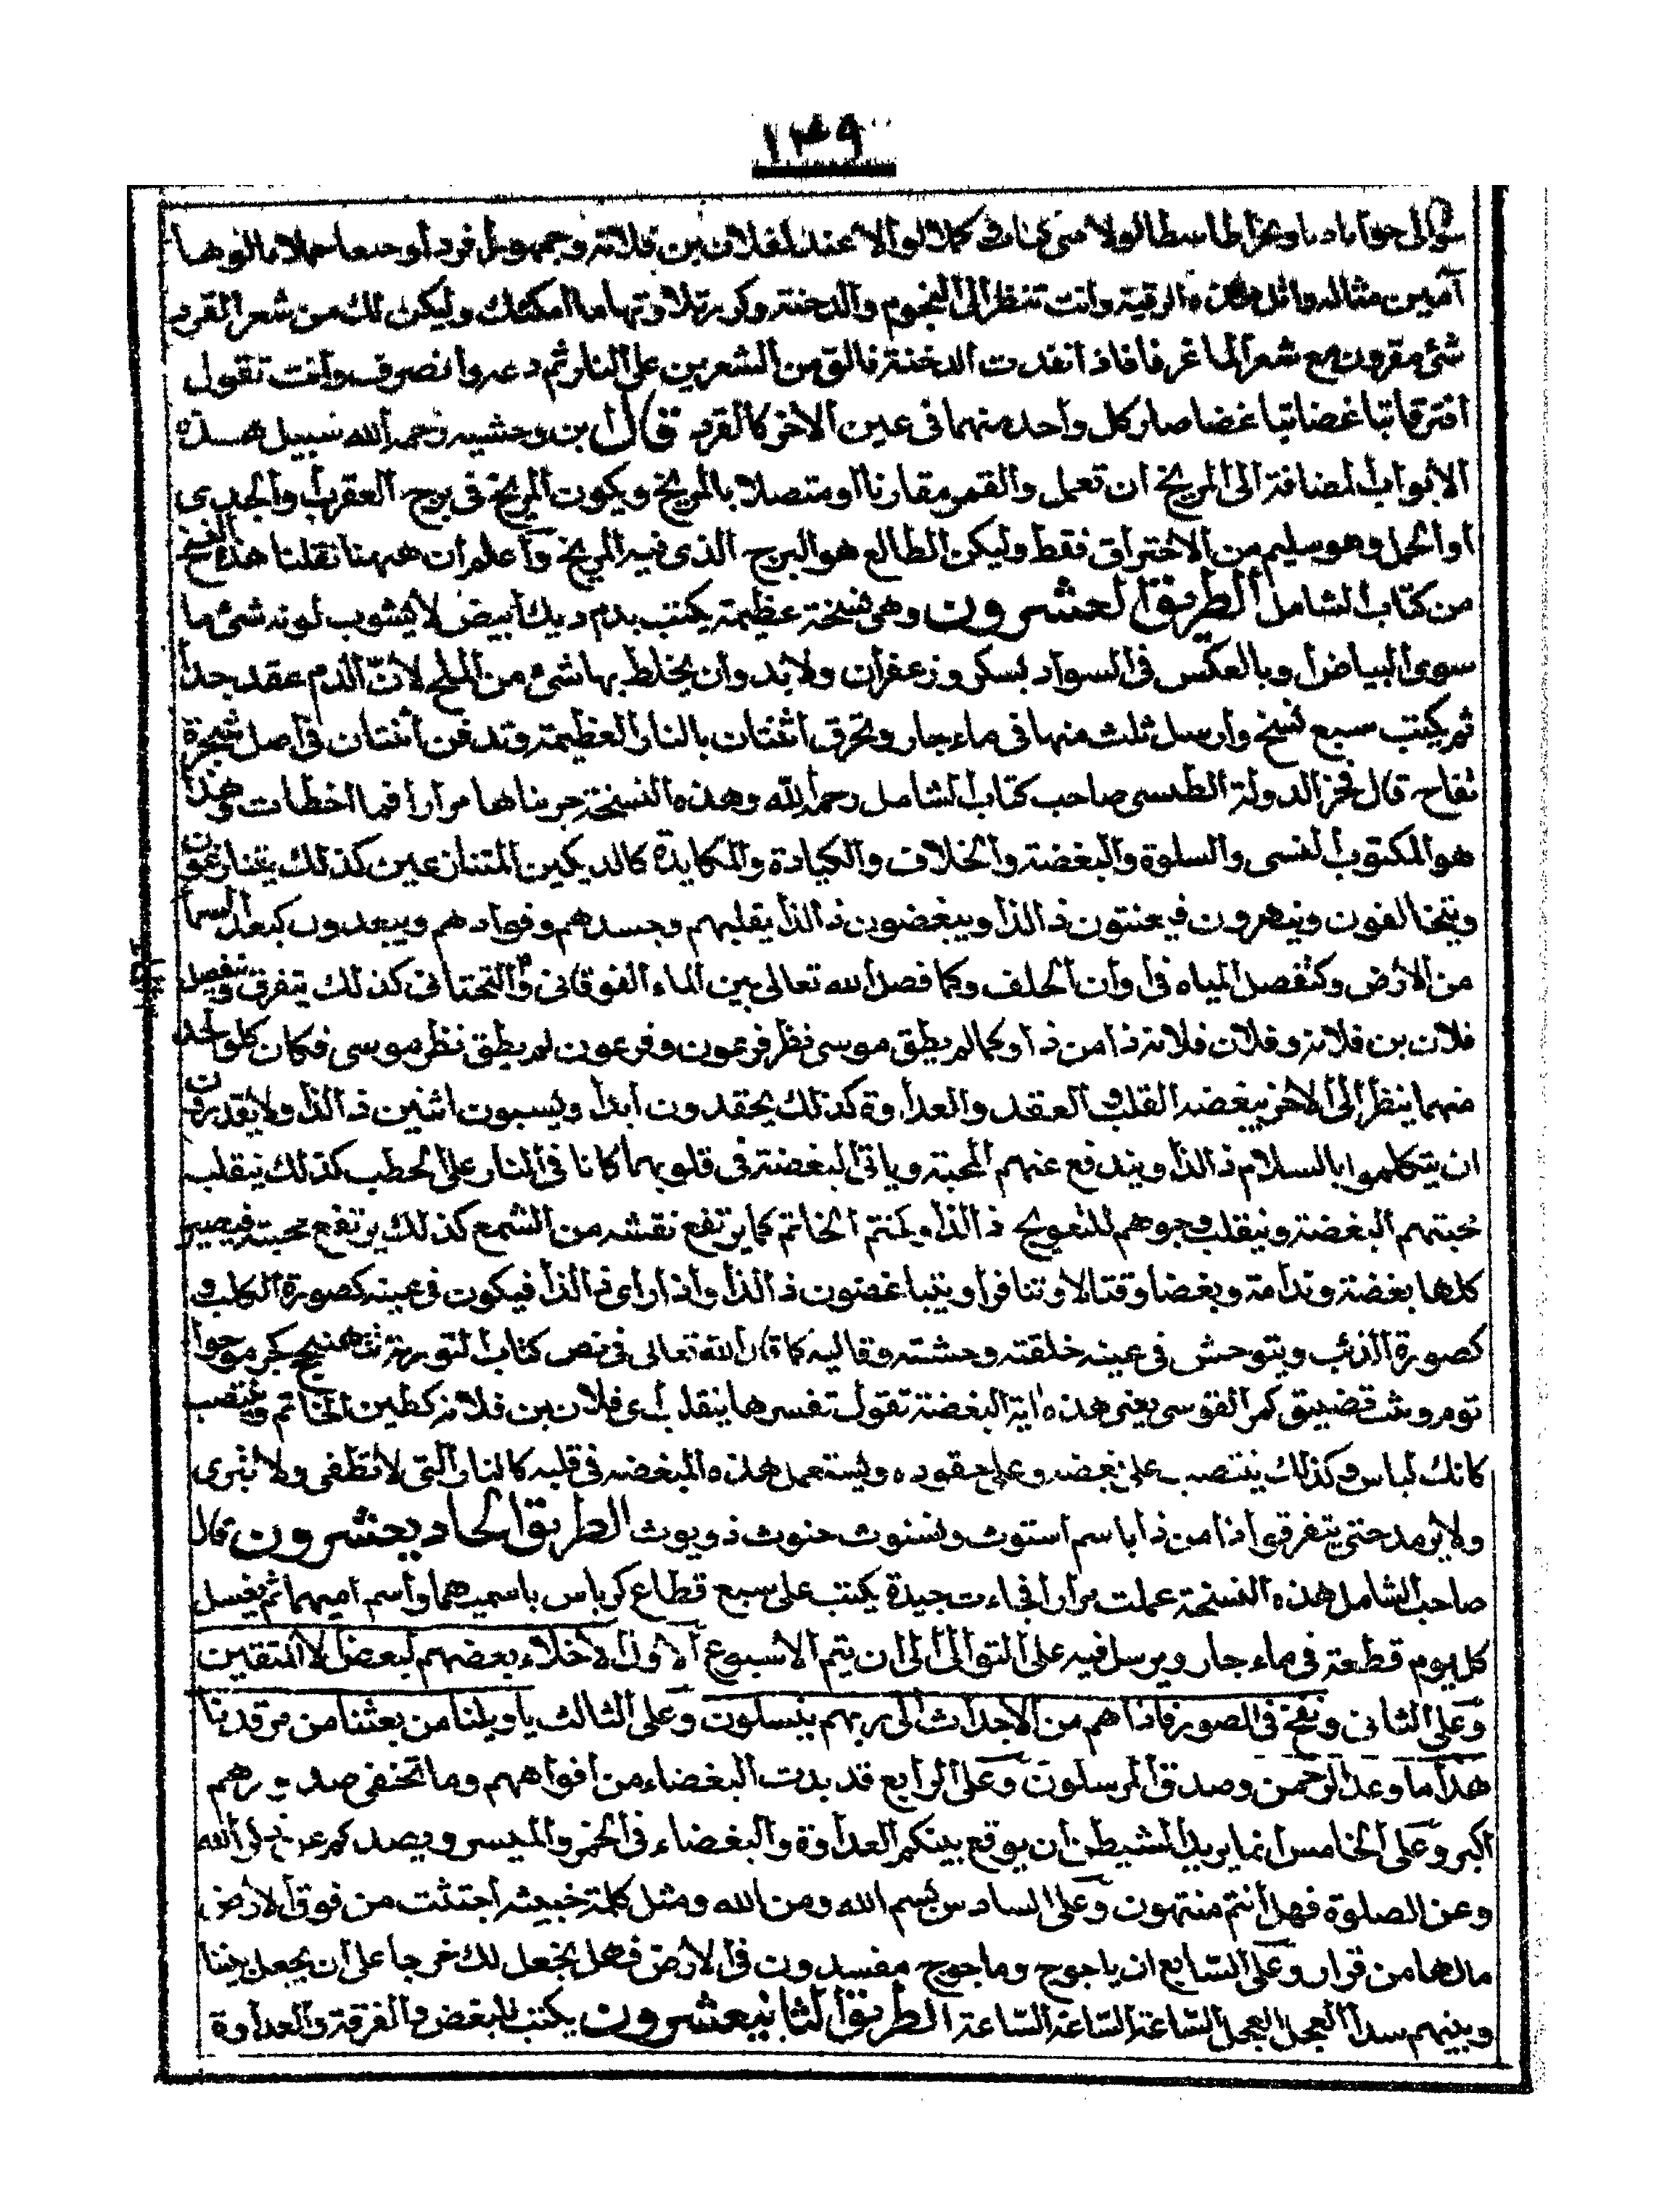 ١٣٩
عند لفلان بن فلانة
آمين مثاله وانت تنظر الى النجوم والدخنة وكرر تلاوتها ما امكنك وليكن لك من شعر القرد
شئ مقرون مع شعر الماعز فاذا نفدت الدخنة فالق من الشعرين على النار ثم دعه وانصرف وانت تقول
افترقا تباغضا تباغضا صار كل واحد منهما فى عين الاخر كالقرد قال ابن وحشيه رحمه الله سبيل هذه
الابواب المضافة الى المريخ ان تعمل والقمر مقارنا او متصلا بالمريخ ويكون المريخ فى برج العقرب والجدى
او الحمل وهو سليم من الاحتراق فقط وليكن الطالع هو البرج الذى فيه المريخ واعلم ان ههنا نقلنا هذه النسخ
من كتاب الشامل الطريق العشرون وهى نسخة عظيمة يكتب بدم ديك ابيض لا يشوب لونه شئ ما
سوى البياض او بالعكس فى السواد بسكر وزعفران ولا بد وان يخلط بها شئ من الملح لان الدم عقد جدا
ثم يكتب سبع نسخ وارسل ثلث منها فى ماء جار وتحرق اثنتان بالنار العظيمة وتدفن اثنتان فى اصل شجرة
تفاح قال فخر الدولة الطبسى صاحب كتاب الشامل رحمه الله وهذه النسخة جربناها مرارا فما اخطات وهذا
هو المكتوب لنسى والسلوة والبغضة والخلاف والكيادة والمكايدة كالديكين المتنازعين كذلك يتنازعون
ويتخالفون وينهرون فيعنتون ذالذا ويبغضون ذالذا بقلبهم وجسدهم وفوادهم ويبعدون كبعد السما
من الارض وكتفصل المياه فى اوان الحلف وكما فصل الله تعالى بين الماء الفوقانى والتحتانى كذلك يتفرق وتنفصل
فلان بن فلانة وفلان فلانة ذا من ذا وكما لم يطق موسى نظر فرعون وفرعون لم يطق نظر موسى فكان كل واحد
منهما ينظر الى الاخر ببغضه القلب والعقد والعداوة كذلك يحقدون ابدا ويسبون اثنين ذالذا ولا يقدرون
ان يتكلموا بالسلام ذالذا ويندفع عنهم المحبة وياتى البغضة فى قلوبهما كانا فى النار على الحطب كذلك ينقلب
محبتهم البغضة وينقلب وجوههم للتعويج ذالذا ويمنتم الخاتم كما يرتفع نقشه من الشمع كذلك يرتفع محبته فيصير
كلها بغضة وندامة وبغضا وقتالا وتنافرا ويتباغضون ذالذا واذا راى ذالذا فيكون فى عينه كصورة الكلب و
كصورة الذئب ويتوحش فى عينه خلقته وحشته وقاليه كما قال الله تعالى فى نص كتاب التورية
يعنى هذه اية البغضة تقول تفسرها ينقلب اى فلان بن فلانة كطين الخاتم وينتصب
كانك لباس وكذلك ينتصب على بغضه وعلى حقوده ويستعمل هذه البغضه فى قلبه كالنار التى لا تطفى ولا تثرى
ولا يرمد حتى يتفرقى اذا من ذا باسم استوث ونسنوث حنوث ذويوث الطريق الحاديعشرون قال
صاحب الشامل هذه النسخة عملت مرارا فجاءت جيدة يكتب على سبع قطاع كرباس باسميهما واسم اميهما ثم يغسل
كل يوم قطعة فى ماء جار ويرسل فيه على التوالى الى ان يتم الاسبوع الاول الاخلاء بعضهم لبعض الا المتقين
وعلى الثانى ونفخ فى الصور فاذا هم من الاجداث الى ربهم ينسلون وعلى الثالث ياويلنا من بعثنا من مرقدنا
هذا ما وعد الرحمن وصدق المرسلون وعلى الرابع قد بدت البغضاء من افواههم وما تخفى صدورهم
اكبر وعلى الخامس انما يريد الشيطن ان يوقع بينكم العداوة والبغضاء فى الخمر والميسر ويصدكم عن ذكر الله
وعن الصلوة فهل انتم منتهون وعلى السادس بسم الله ومن الله ومثل كلمة خبيثه اجتثت من فوق الارض
مالها من قرار وعلى السابع ان ياجوج وماجوج مفسدون فى الارض فهل نجعل لك خرجا على ان يجعل بيننا
وبينهم سدا العجل العجل الساعة الساعة الساعة الطريق الثانيعشرون يكتب للبغض والفرقة والعداوة